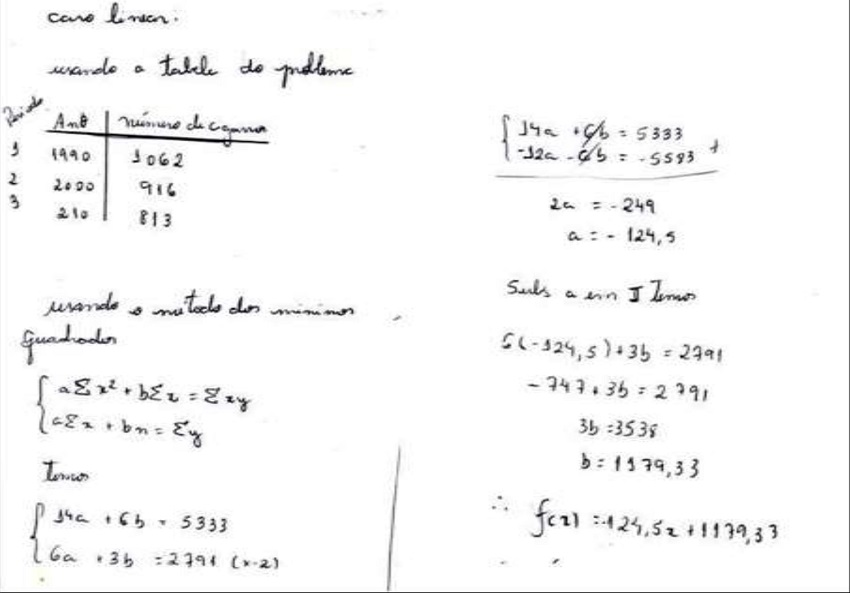 caso linear.
usando a tabela do problema
Período Ano número de cigarros
1 1990 1062
2 2000 916
3 210 813
usando o método dos mínimos
quadrados
aΣx² + bΣx = Σxy
aΣx + bn = Σy
temos
14a + 6b = 5333
6a + 3b = 2791 (x-2)
14a + 6b = 5333
-12a - 6b = -5583 +
2a = -249
a = - 124,5
Subs a em I temos
6(-124,5)+3b = 2791
-747+3b = 2791
3b = 3538
b = 1179,33
∴ f(x) = -124,5x + 1179,33